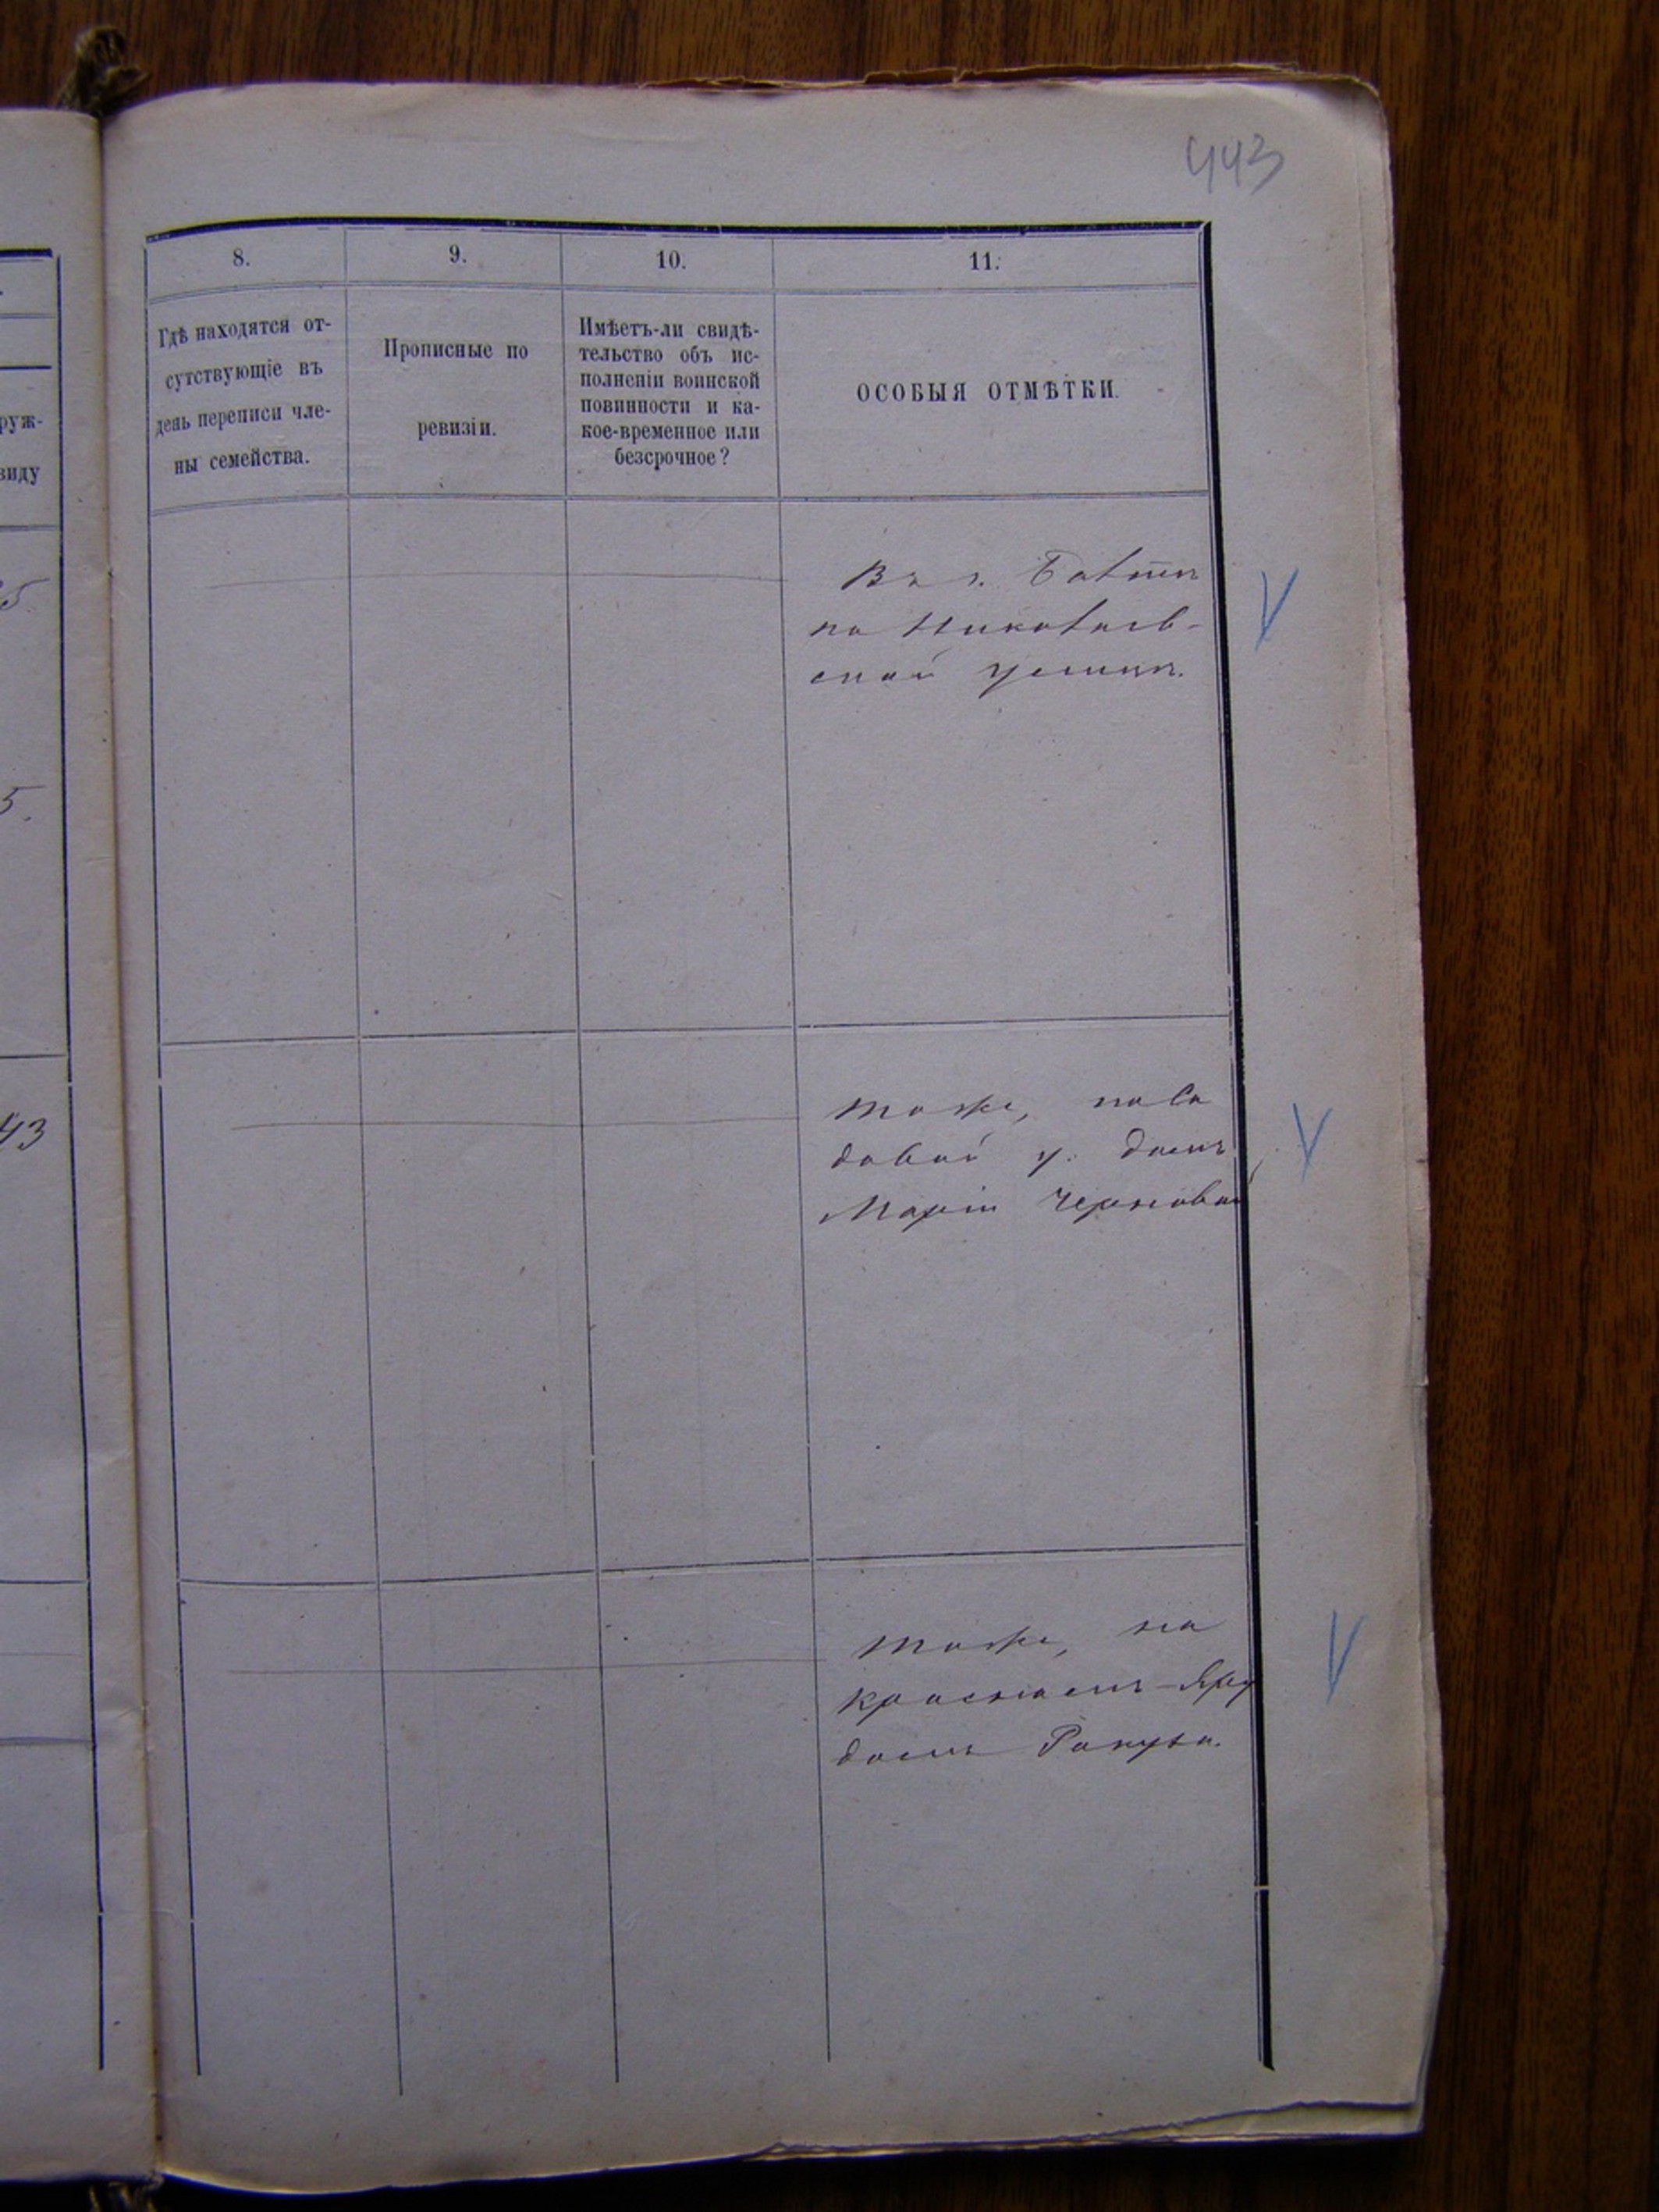 443
8.
9.
10.
11.
Гдѣ находятся от-
сутствующіе въ
день переписи чле-
ны семейства.
Прописные по
ревизіи.
Имѣетъ-ли свидѣ-
тельство объ ис-
полненіи воинской
повинности и ка-
кое-временное или
безсрочное?
ОСОБЫЯ ОТМѢТКИ.
руж-
виду
5
5.
43
Въ г. Балтѣ
по Николаев-
ской улицѣ.
Тоже,
у. домъ
Маріи Черновой
Тоже, на
Красномъ-Яру
домъ